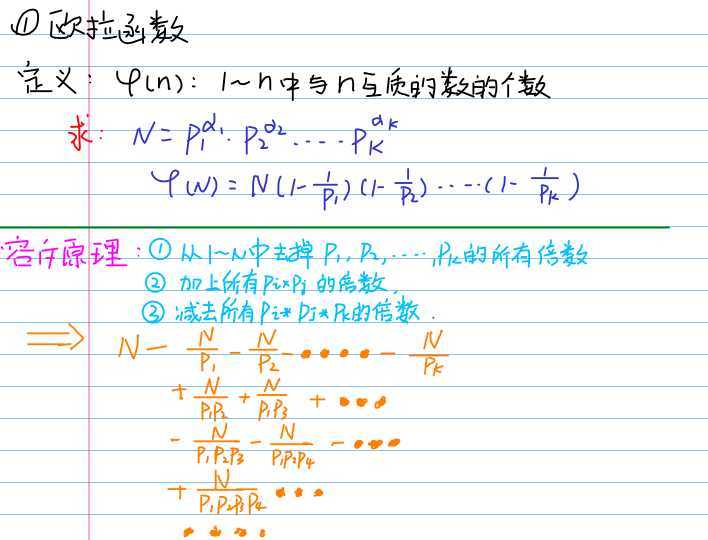 ① 欧拉函数
定义: φ(n): 1~n中与n互质的数的个数
求: N = p₁^α₁ · p₂^α₂ ····· p_K^α_K
φ(N) = N(1-1/p₁)(1-1/p₂)·····(1-1/p_k)
容斥原理: ① 从1~N中去掉 P₁, P₂, ····, P_k的所有倍数
② 加上所有Pi×Pj 的倍数.
③ 减去所有Pi*Pj*Pk的倍数.
⟹ N - N/P₁ - N/P₂ - ····· - N/P_K
+ N/P₁P₂ + N/P₁P₃ + ···
- N/P₁P₂P₃ - N/P₁P₂P₄ - ····
+ N/P₁P₂P₃P₄ ···
····